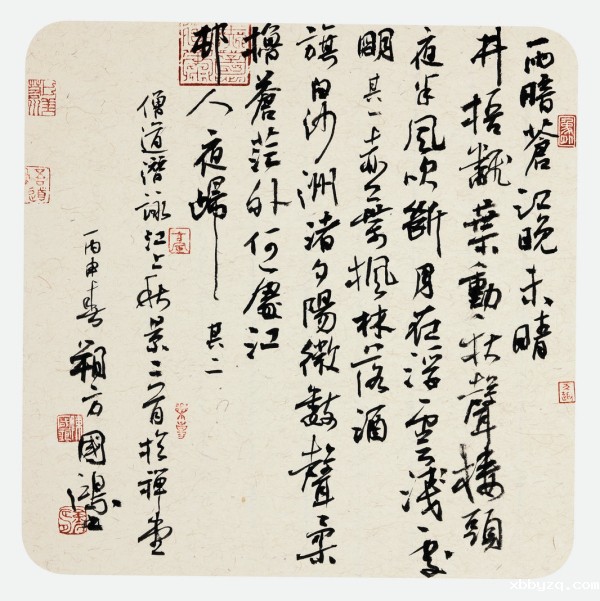 雨暗蒼江晚未晴
井梧翻葉動秋聲樓頭
夜半風吹斷月在浮雲淺處
明其一赤葉楓林落酒
旗白沙洲渚夕陽微數聲柔
櫓蒼茫外何處江
邨人夜歸其二
僧道潛詠江上秋景二首於禪堂
丙申春朔方國鴻
xbbyzq.com